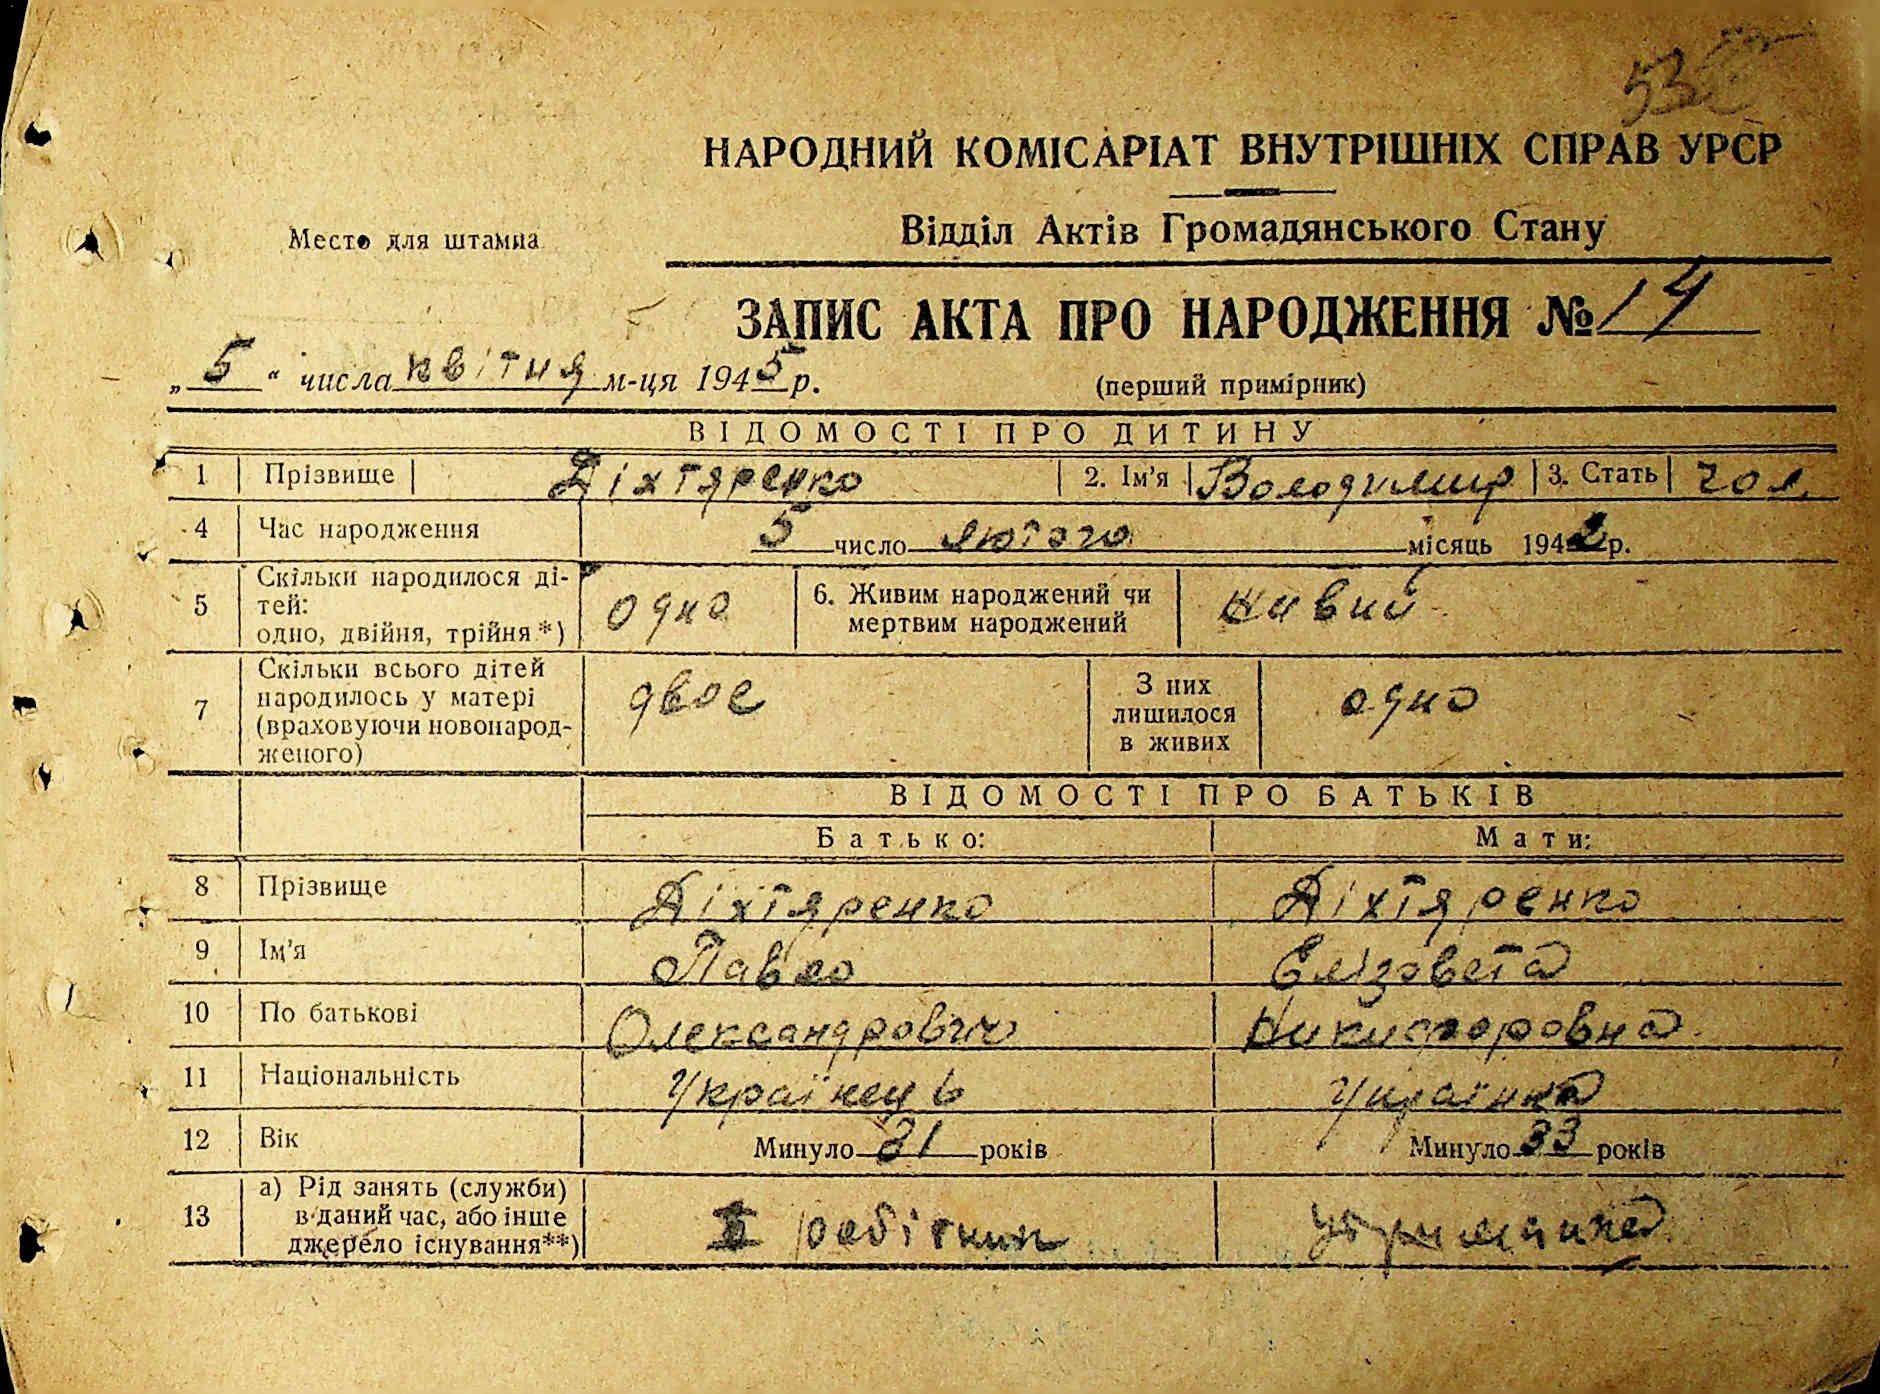 53
НАРОДНИЙ КОМІСАРІАТ ВНУТРІШНІХ СПРАВ УРСР
Место для штампа
Відділ Актів Громадянського Стану
ЗАПИС АКТА ПРО НАРОДЖЕННЯ № 14
„ 5 “ числа квітня м-ця 1945 р.
(перший примірник)
ВІДОМОСТІ ПРО ДИТИНУ
1 Прізвище Діхтяренко 2. Ім'я Володимир 3. Стать чол.
4 Час народження 5 число лютого місяць 1942 р.
5 Скільки народилося ді-
тей:
одно, двійня, трійня*) одно 6. Живим народжений чи
мертвим народжений живий
7 Скільки всього дітей
народилось у матері
(враховуючи новонарод-
женого) двое З них
лишилося
в живих одно
ВІДОМОСТІ ПРО БАТЬКІВ
Батько: Мати:
8 Прізвище Діхтяренко Діхтяренко
9 Ім'я Павло Єлізовета
10 По батькові Олександрович Никифоровна
11 Національність Українець Українка
12 Вік Минуло 31 років Минуло 33 років
13 а) Рід занять (служби)
в даний час, або інше
джерело існування**) робітник утриманка